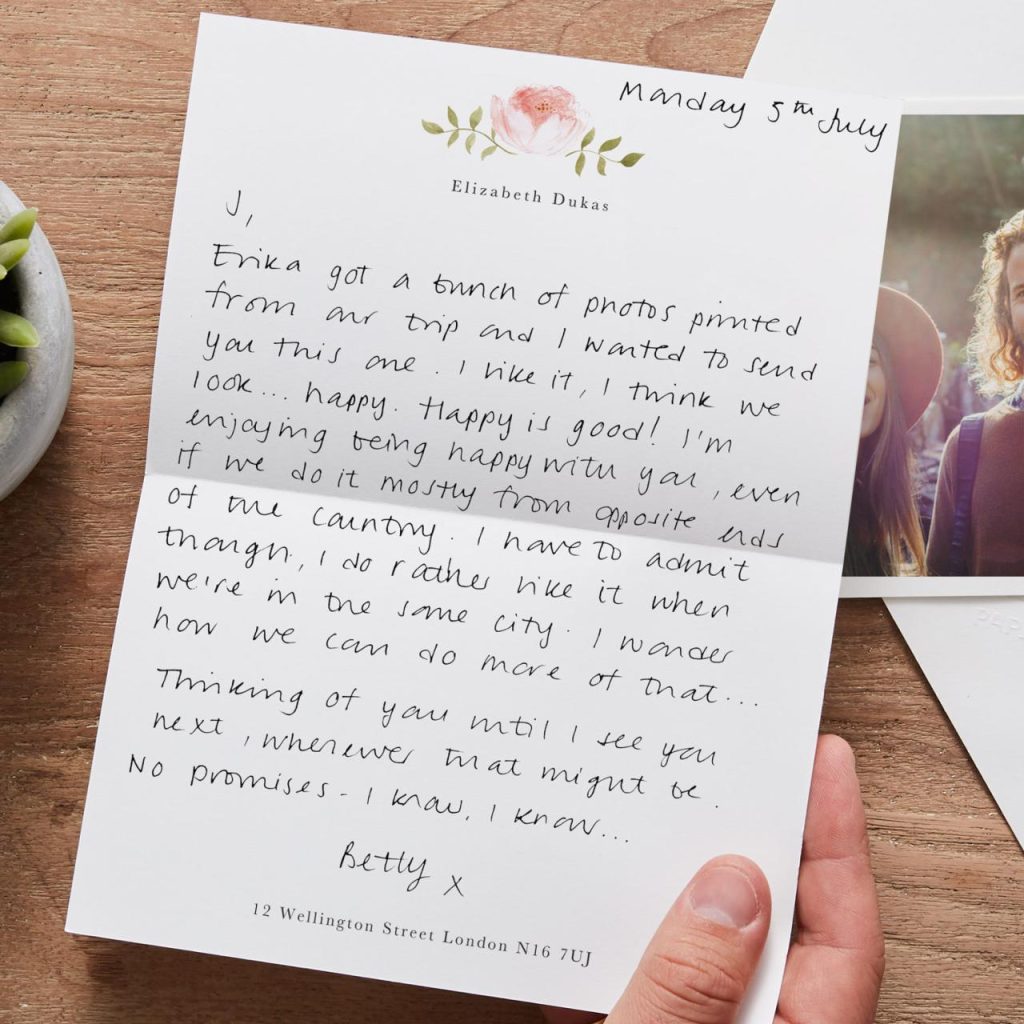 Monday 5th July
Elizabeth Dukas
J,
Erika got a bunch of photos printed
from our trip and I wanted to send
you this one. I like it, I think we
look... happy. Happy is good! I'm
enjoying being happy with you, even
if we do it mostly from opposite ends
of the country. I have to admit
though, I do rather like it when
we're in the same city. I wonder
how we can do more of that...
Thinking of you until I see you
next, wherever that might be.
No promises - I know, I know...
Betty x
12 Wellington Street London N16 7UJ